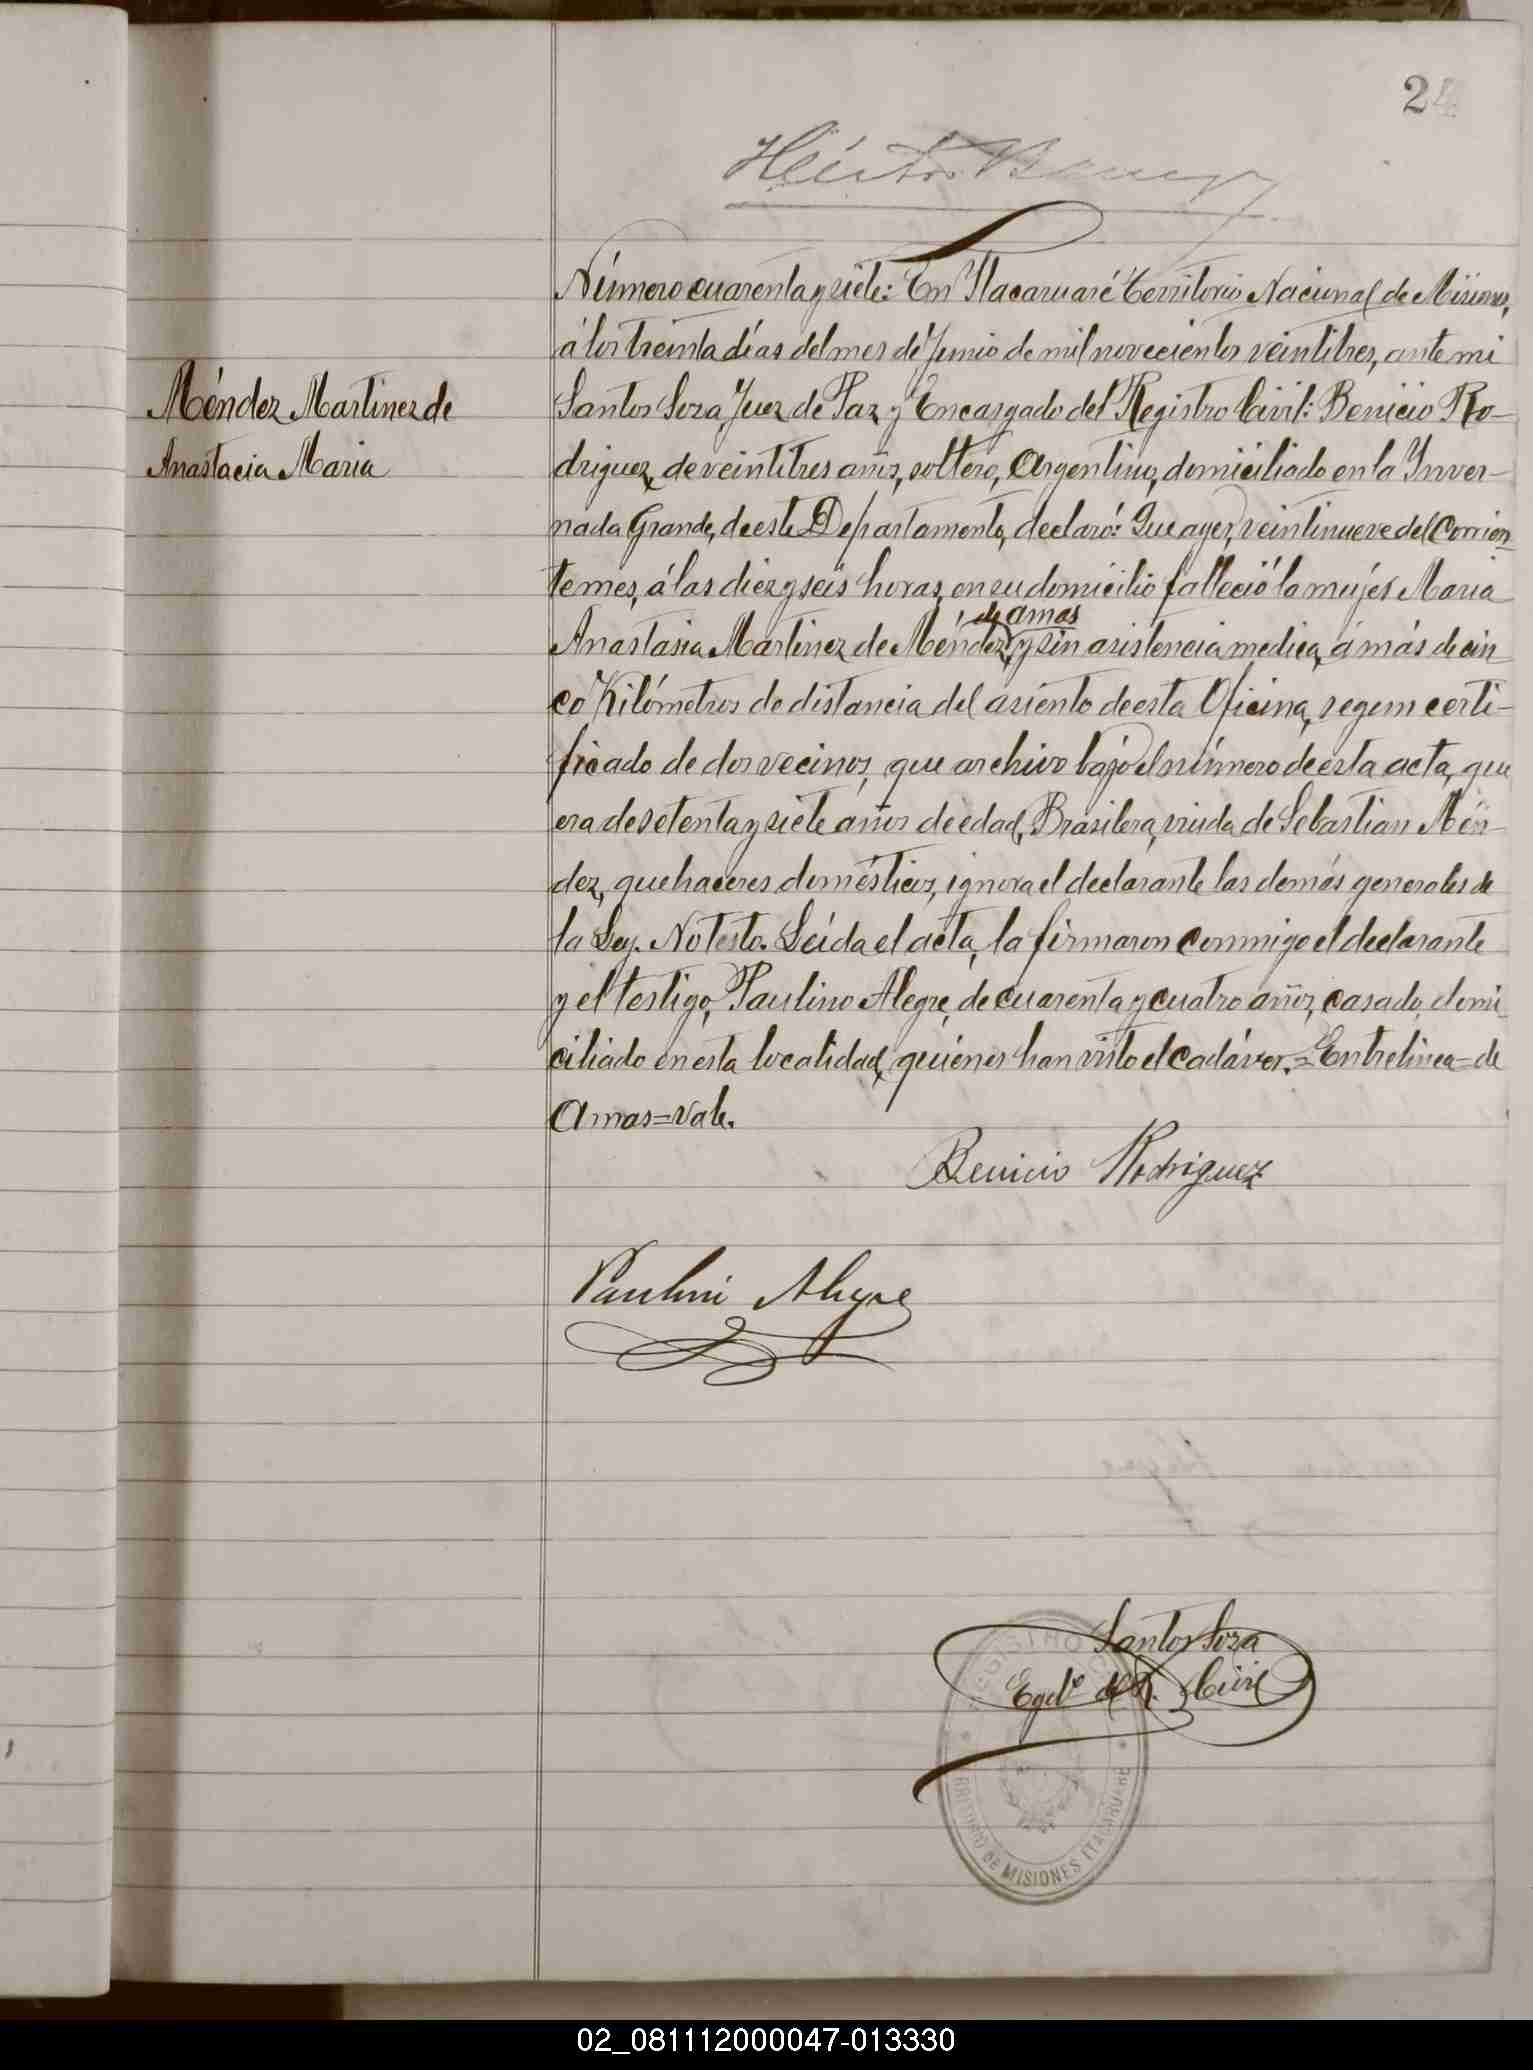 24
Méndez Martinez de
Anastacia Maria
Número cuarenta y siete: En Itacaruaré Territorio Nacional de Misiones,
á los treinta días del mes de Junio de mil novecientos veintitres, ante mi
Santos Soza, Juez de Paz y Encargado del Registro Civil: Benicio Ro-
driguez, de veintitres años, soltero, Argentino, domiciliado en la Inver-
nada Grande, de este Departamento, declaró: Que ayer, veintinueve del corrien-
te mes, á las diez y seis horas, en su domicilio falleció la mujer Maria
, de amas
Anastasia Martinez de Méndez, y sin asistencia medica, á más de cin
co Kilómetros de distancia del asiento de esta Oficina, segun certi-
ficado de dos vecinos, que archivo bajo el número de esta acta, que
era de setenta y siete años de edad, Brasilera, viuda de Sebastian Mén-
dez, quehaceres domésticos, ignora el declarante las demás generales de
la Ley. No testo. Leída el acta, la firmaron conmigo el declarante
y el testigo, Paulino Alegre, de cuarenta y cuatro años, casado, domi
ciliado en esta localidad, quienes han visto el cadáver.=Entrelinea=de
Amas=Vale.
Benicio Rodriguez
Paulini Alegre
Santos Soza
Egdo del R. Civil
REGISTRO
TERRITORIO DE MISIONES ITACARUARE
02_081112000047-013330